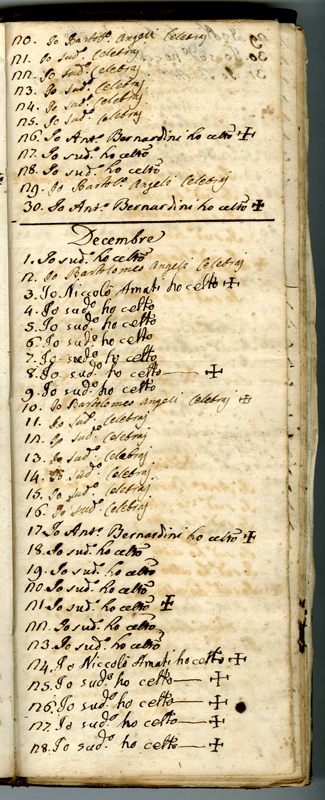 20. Io Bartol.º Angeli Celebraj
21. Io sud.º Celebraj
22. Io sud.º Celebraj
23. Io sud.º Celebraj
24. Io sud.º Celebraj
25. Io sud.º Celebraj
26. Io Ant.º Bernardini ho celtõ ✠
27. Io sud.º ho celtõ
28. Io sud.º ho celtõ
29. Io Bartol.º Angeli Celebraj
30. Io Ant.º Bernardini ho celtõ ✠
Decembre
1. Io sud.º ho celtõ
2. Io Bartolomeo Angeli Celebraj
3. Io Niccolò Amati ho celtõ ✠
4. Io sud.º ho celtõ
5. Io sud.º ho celtõ
6. Io sud.º ho celtõ
7. Io sud.º ho celtõ
8. Io sud.º ho celtõ — ✠
9. Io sud.º ho celtõ
10. Io Bartolomeo Angeli Celebraj ✠
11. Io sud.º Celebraj
12. Io sud.º Celebraj
13. Io sud.º Celebraj
14. Io sud.º Celebraj
15. Io sud.º Celebraj
16. Io sud.º Celebraj
17. Io Ant.º Bernardini ho celtõ ✠
18. Io sud.º ho celtõ
19. Io sud.º ho celtõ
20. Io sud.º ho celtõ
21. Io sud.º ho celtõ ✠
22. Io sud.º ho celtõ
23. Io sud.º ho celtõ
24. Io Niccolò Amati ho celtõ ✠
25. Io sud.º ho celtõ — ✠
26. Io sud.º ho celtõ — ✠
27. Io sud.º ho celtõ — ✠
28. Io sud.º ho celtõ — ✠